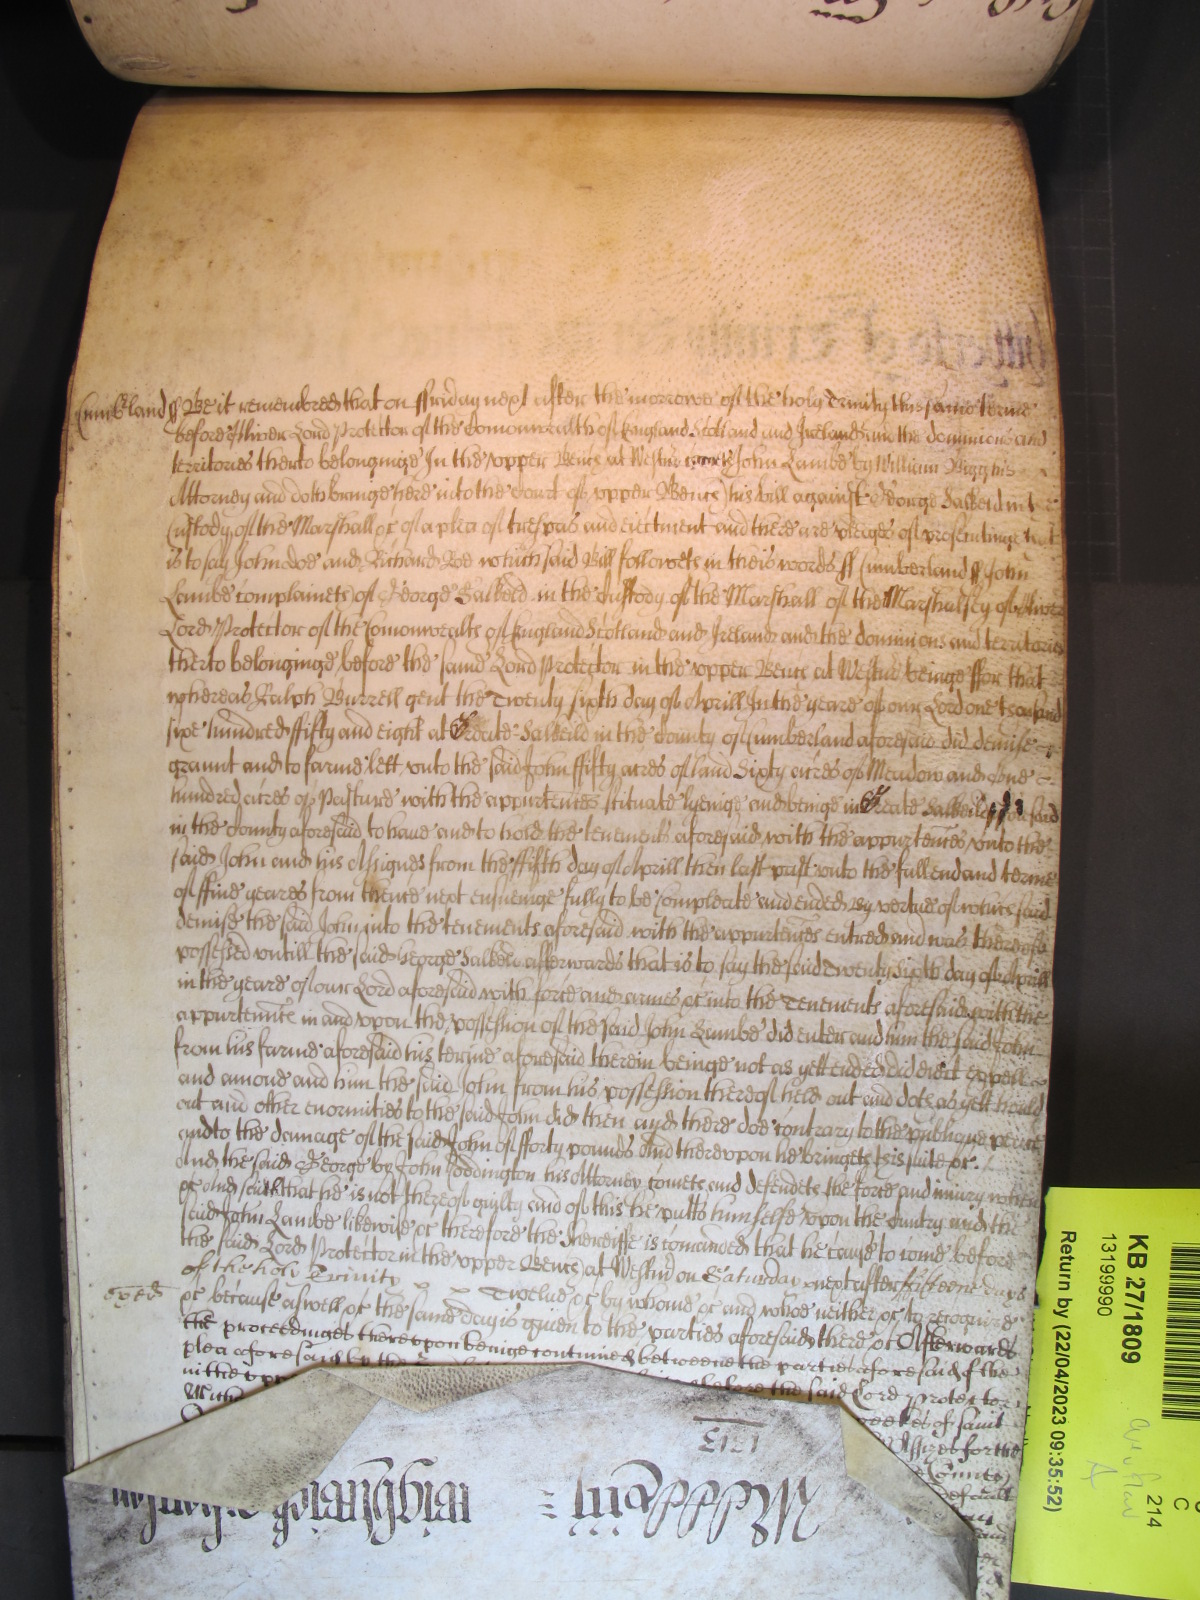 Cumb'land ss Be it remembred that on ffryday next after the morrowe of the holy Trinity this same terme
before Oliver Lord Protector of the Comonwealth of England Scotland and Ireland and the dominions and
territories therto belonginge In the upper Bench at Westmr cometh John Lambe by William Bigg his
Attorney and doth bringe here into the Court of upper Bench his bill against George Salkeld in the
Custody of the Marshall &c of a plea of trespas and eiectment and there are pledges of prosecutinge that
is to say John doe and Richard Roe which said Bill followeth in theis words ss Cumberland ss John
Lambe complaineth of George Salkeld in the Custody of the Marshall of the Marshalsey of Oliver
Lord Protector of the Comonwealth of England Scotland and Ireland and the dominions and territories
therto belonginge before the said Lord Protector in the upper Bench at Westmr beinge ffor that
whereas Ralph Burrell gent the Twenty sixth day of Aprill In the yeare of our Lord one thousand
sixe hundred ffifty and eight at Greate Salkeild in the County of Cumberland aforesaid did demise
graunt and to farme lett unto the said John ffifty acres of land Sixty acres of Meadow and one
hundred acres of Pasture with the appurtences scituate lyeinge and beinge in Greate Salkeild aforesaid
in the County aforesaid to have and to hold the tenements aforesaid with the appurtences unto the
said John and his Assignes from the ffifth day of Aprill then last past unto the full end and terme
of ffive yeares from thence next ensueinge fully to be compleate and ended By vertue of which said
demise the said John into the tenements aforesaid with the appurtences entred and was thereof
possessed untill the said George Salkeld afterwards that is to say the said Twenty sixth day of Aprill
in the yeare of our Lord aforesaid with force and armes &c into the Tenements aforesaid with the
appurtences in and upon the possession of the said John Lambe did enter and him the said John
from his farme aforesaid his terme aforesaid therein beinge not as yett ended did eiect expell
and amove and him the said John from his possession thereof held out and doth as yett hould
out and other enormities to the said John did then and there doe contrary to the publique peace
and to the damage of the said John of fforty pounds And thereupon he bringeth his suite &c.
And the said George by John Coddington his Attorney cometh and defendeth the force and iniury when
&c And saith that he is not thereof guilty and of this he putts himselfe upon the Cuntry and the
said John Lambe likewise &c therefore the Sheriffe is comanded that he cause to come before
the said Lord Protector in the upper Bench at Westmr on Saturday next after fifteene dayes
of the holy Trinity Twelve &c by whome &c and whoe neither &c to recognize
&c because aswell &c the same day is given to the parties aforesaid there &c Afterwards
the proceedinges thereupon beinge continued betweene the parties aforesaid of the
plea aforesaid by the
in the upp before the said Lord Protector
With weekes of Saint
Assizes for the
County
default
Midd
1213
KB 27/1809
13199990
Return by (22/04/2023 09:35:52)
214
C